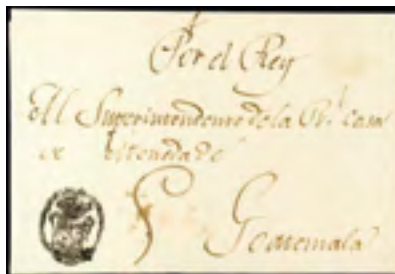 Por el Rey
Al Superintendente de la Rl. casa
de Moneda de
Goatemala